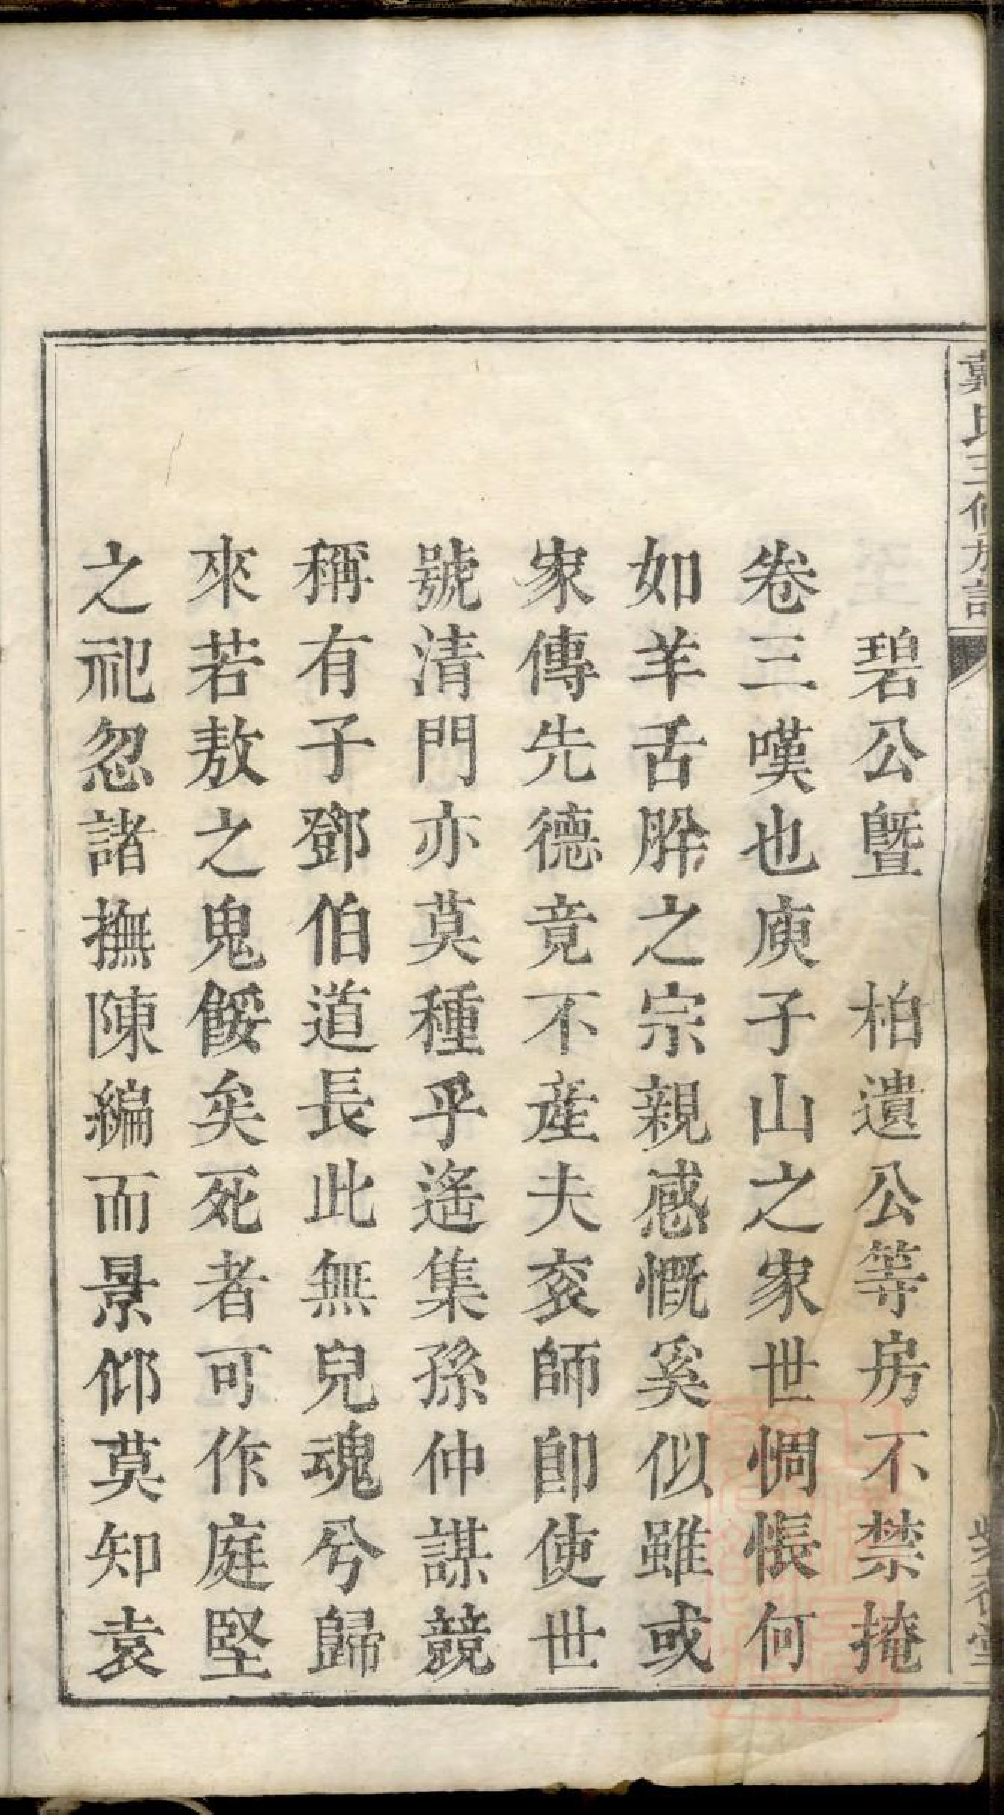 戴氏三修族譜
碧公暨　柏遺公等房不禁掩
卷三嘆也庾子山之家世惆悵何
如羊舌肸之宗親感慨奚似雖或
家傳先德竟不產夫衮師卽使世
號清門亦莫種乎遙集孫仲謀競
稱有子鄧伯道長此無兒魂兮歸
來若敖之鬼餒矣死者可作庭堅
之祀忽諸撫陳編而景仰莫知袁